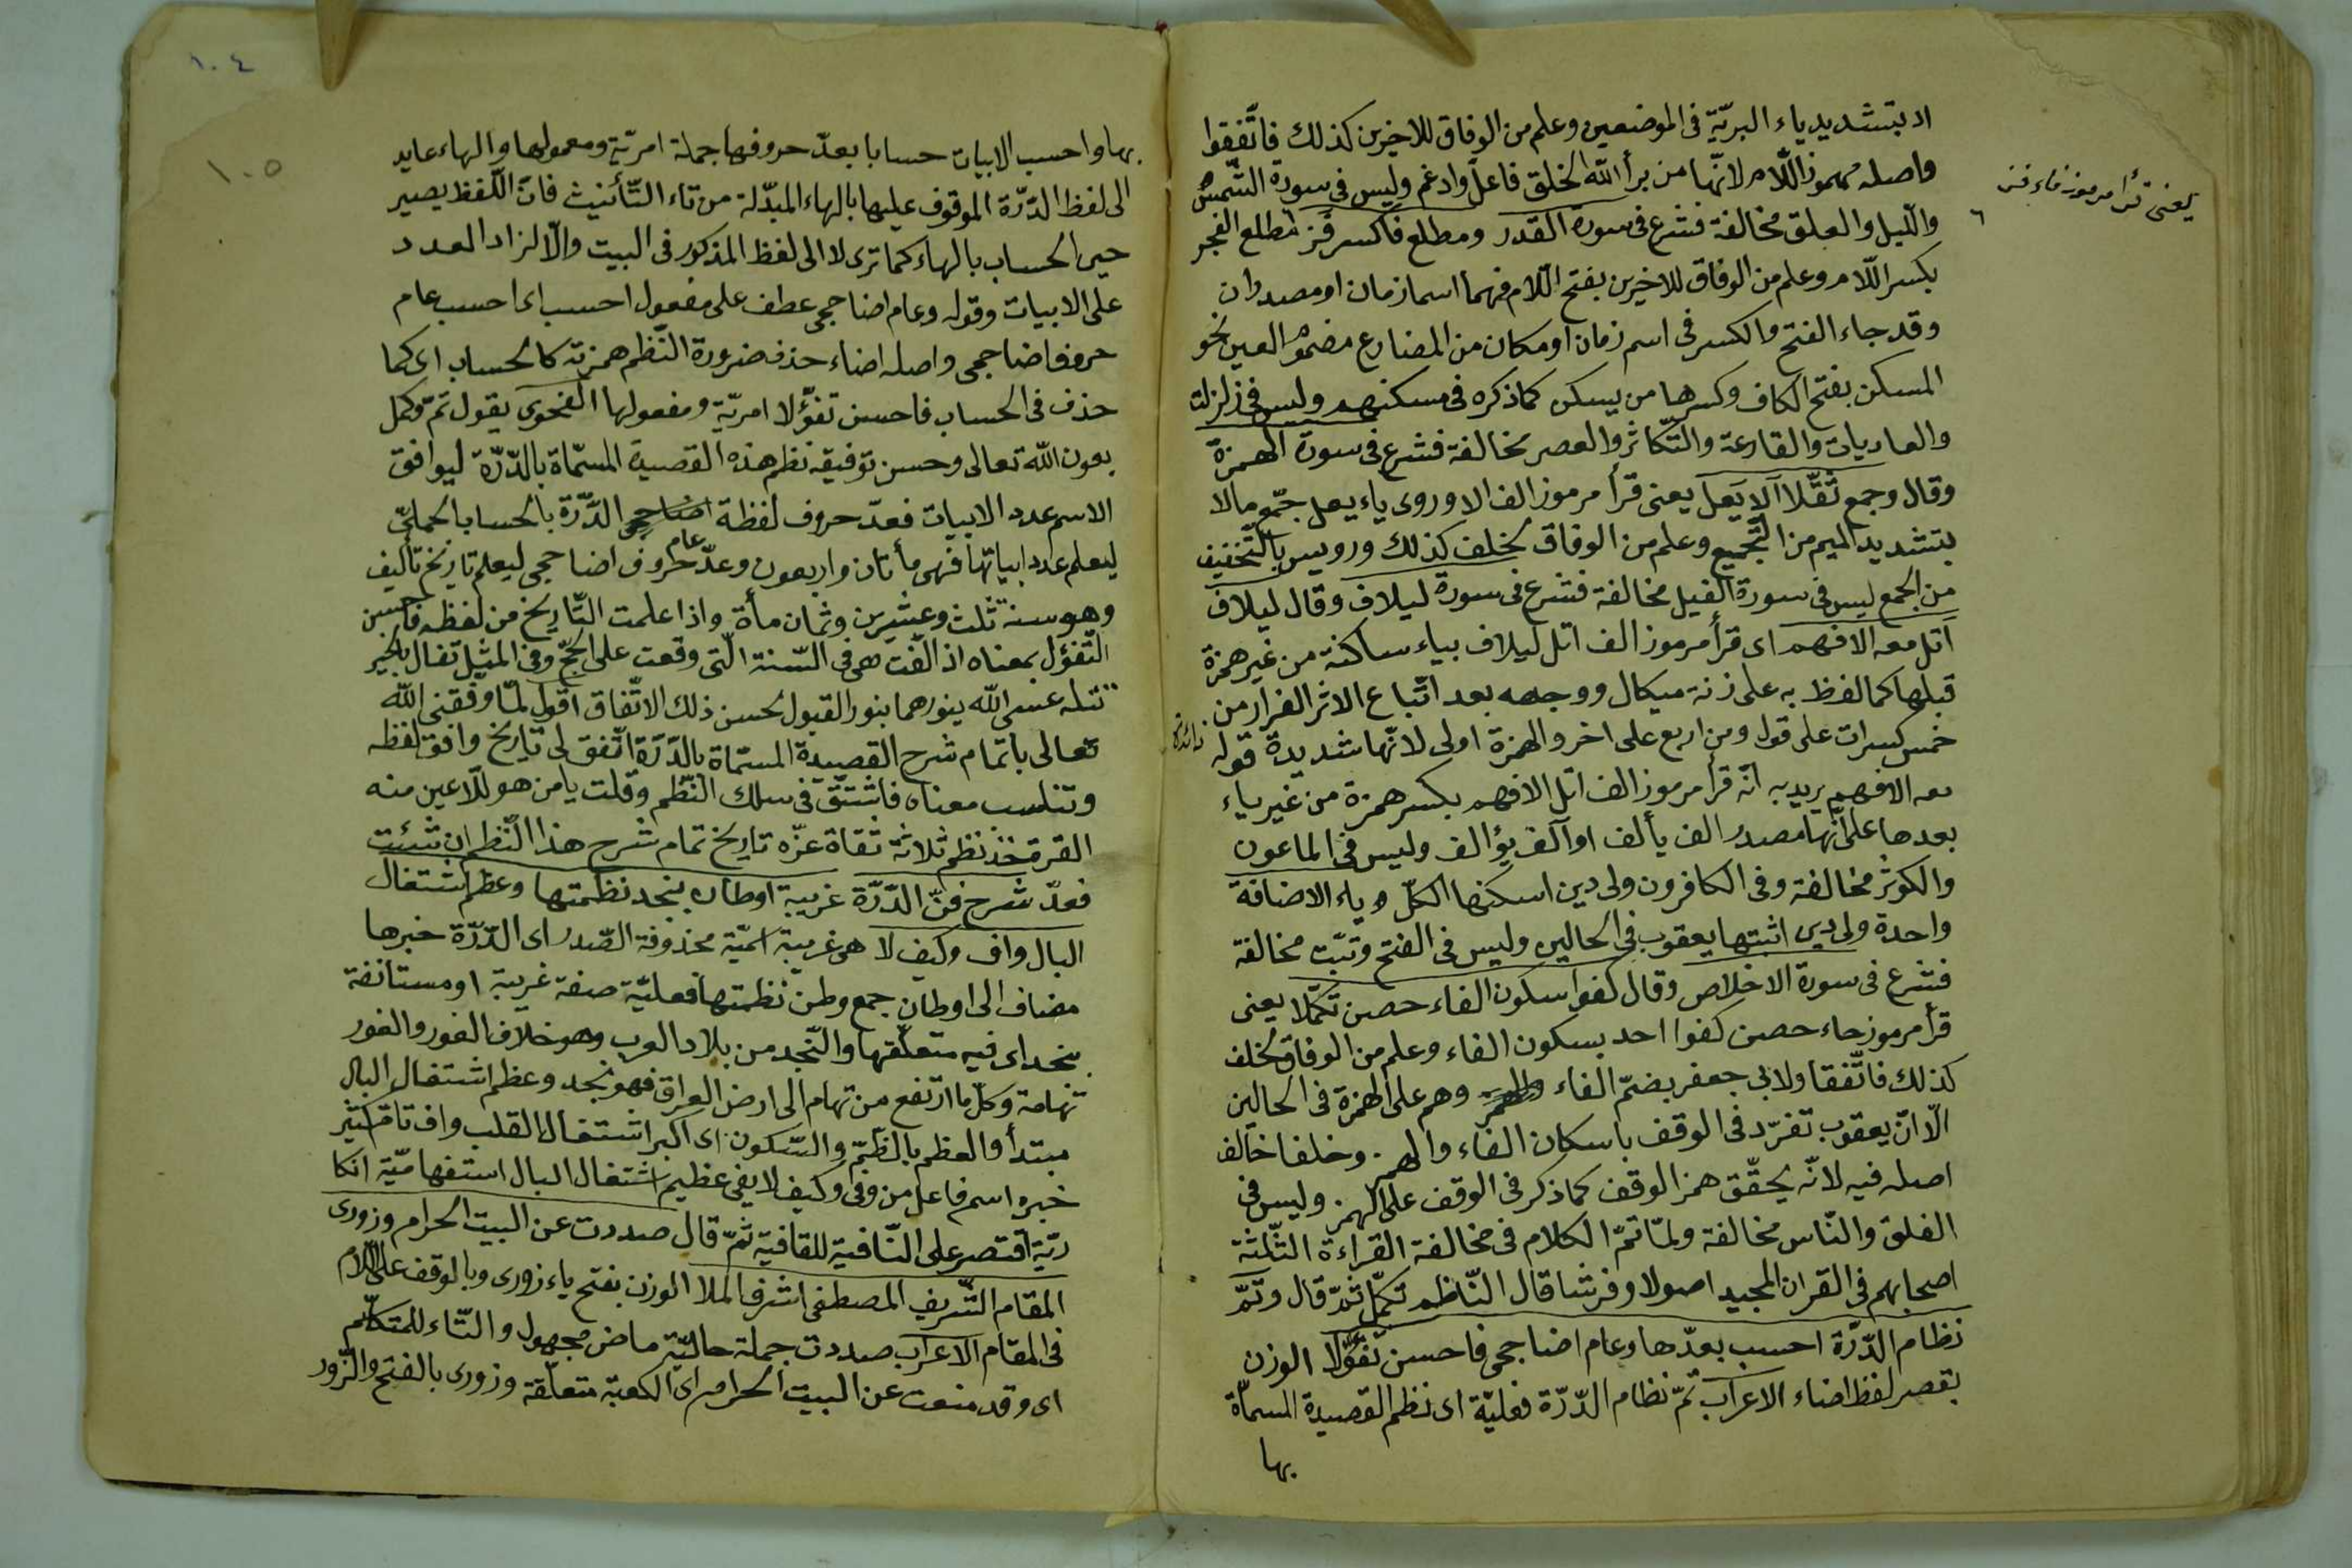 اد بتشديد ياء البريّة فى الموضعين وعلم من الوفاق للاخيرين كذلك فاتّفقوا
واصله مهموز اللّام لانّها من برأ الله الخلق فاعل وادغم وليس فى سورة الشّمس
واللّيل والعلق مخالفة فشرع فى سورة القدر ومطلع فاكسر فز مطلع الفجر
بكسر اللّام وعلم من الوفاق للاخيرين بفتح اللّام فهما اسما زمان او مصدران
وقد جاء الفتح والكسر فى اسم زمان او مكان من المضارع مضموم العين نحو
المسكن بفتح الكاف وكسرها من يسكن كما ذكره فى مسكنهم وليس فى زلزلت
والعاديات والقارعة والتّكاثر والعصر مخالفة فشرع فى سورة الهمزة
وقال وجمع ثقّلا آلا يعل يعنى قرأ مرموز الف الا وروى ياء يعل جمّع مالا
بتشديد الميم من التّجميع وعلم من الوفاق لخلف كذلك ورويس بالتّخفيف
من الجمع ليس فى سورة الفيل مخالفة فشرع فى سورة ليلاف وقال ليلاف
اتل معه الافهم اى قرأ مرموز الف اتل ليلاف بياء ساكنة من غير همزة
قبلها كما لفظ به على زنة ميكال ووجهه بعد اتّباع الاثر الفرار من
خمس كسرات على قول ومن اربع على اخر والهمزة اولى لانّها شديدة قوله
معه الافهم يريد به انّه قرأ مرموز الف اتل الافهم بكسر همزة من غير ياء
بعدها على انّها مصدر الف يألف او آلف يؤالف وليس فى الماعون
والكوثر مخالفة وفى الكافرون ولى دين اسكنها الكلّ وياء الاضافة
واحدة ولى دين اثبتها يعقوب فى الحالين وليس فى الفتح وتبّت مخالفة
فشرع فى سورة الاخلاص وقال كفوا سكون الفاء حصن تكمّلا يعنى
قرأ مرموز حاء حصن كفوا احد بسكون الفاء وعلم من الوفاق لخلف
كذلك فاتّفقا ولابى جعفر بضمّ الفاء وهم على الهمزة فى الحالين
الّا انّ يعقوب تفرّد فى الوقف باسكان الفاء والهمز وخلفا خالف
اصله فيه لانّه يحقّق همز الوقف كما ذكر فى الوقف على الهمز وليس فى
الفلق والنّاس مخالفة ولمّا تمّ الكلام فى مخالفة القراءة الثّلثة
اصحابهم فى القران المجيد اصولا وفرشا قال النّاظم تكمّل ثمّ قال وتمّ
نظام الدّرّة احسب بعدّها وعام اضا حجى فاحسن تفؤّلا الوزن
بقصر لفظ اضاء الاعراب تمّ نظام الدّرّة فعليّة اى نظم القصيدة المسمّاة
بها
يعنى قرأ مرموز فاء فز
٦
زائدة
١٠٤
١٠٥
بها واحسب الابيات حسابا بعدّ حروفها جملة امريّة ومعمولها والهاء عايد
الى لفظ الدّرّة الموقوف عليها بالهاء المبدّلة من تاء التّأنيث فانّ اللّفظ يصير
حين الحساب بالهاء كما ترى لا الى لفظ المذكور فى البيت والّا لزاد العدد
على الابيات وقوله وعام اضا حجى عطف على مفعول احسب اى احسب عام
حروف اضا حجى واصله اضاء حذف ضرورة النّظم همزته كالحساب اى كما
حذف فى الحساب فاحسن تفؤّلا امريّة ومفعولها الفحوى يقول تمّ وكمل
بعون الله تعالى وحسن توفيقه نظم هذه القصيدة المسمّاة بالدّرّة ليوافق
الاسم عدد الابيات فعدّ حروف لفظة اضا حجى الدّرّة بالحساب الجمليّ
ليعلم عدد ابياتها فهى مأتان واربعون وعدّ حروف عام اضا حجى ليعلم تاريخ تأليف
وهو سنة ثلث وعشرين وثمان مأة واذا علمت التّاريخ من لفظه فاحسن
التّفؤل بمعناه اذ الّفت هى فى السّنة الّتى وقعت على الحجّ وفى المثل تفال بالخير
تنله عسى الله ينورهما بنور القبول لحسن ذلك الاتّفاق اقول لمّا وفّقنى الله
تعالى باتمام شرح القصيدة المسمّاة بالدّرّة اتّفق لى تاريخ وافق لفظه
وتناسب معناه فاشتقّ فى سلك النّظم وقلت يا من هو للاعين منه
القرة خذ نظم ثلاثة ثقاة عزّه تاريخ تمام شرح هذا النّظم ان شئت
فعدّ شرح فنّ الدّرّة غريبة اوطان بنجد نظمتها وعظم اشتغال
البال واف وكيف لا هى غريبة اسميّة محذوفة الصّدر اى الدّرّة خبرها
مضاف الى اوطان جمع وطن نظمتها فعليّة صفة غريبة او مستانفة
بنجد اى فيه متعلّقها والنّجد من بلاد العرب وهو خلاف الغور والغور
تهامة وكلّ ما ارتفع من تهام الى ارض العراق فهو نجد وعظم اشتغال البال
مبتدأ والعظم بالضّمّ والسّكون اى اكبر اشتغال القلب واف تامّ كثير
خبره اسم فاعل من وفى وكيف لا يفى عظيم اشتغال البال استفهاميّة انكا
ريّة اقتصر على النّافية للقافية ثمّ قال صددت عن البيت الحرام وزورى
المقام الشّريف المصطفى اشرف الملا الوزن بفتح ياء زورى وبالوقف على اللّام
فى المقام الاعراب صددت جملة حاليّة ماض مجهول والتّاء للمتكلّم
اى وقد منعت عن البيت الحرام اى الكعبة متعلّقة وزورى بالفتح والزّور